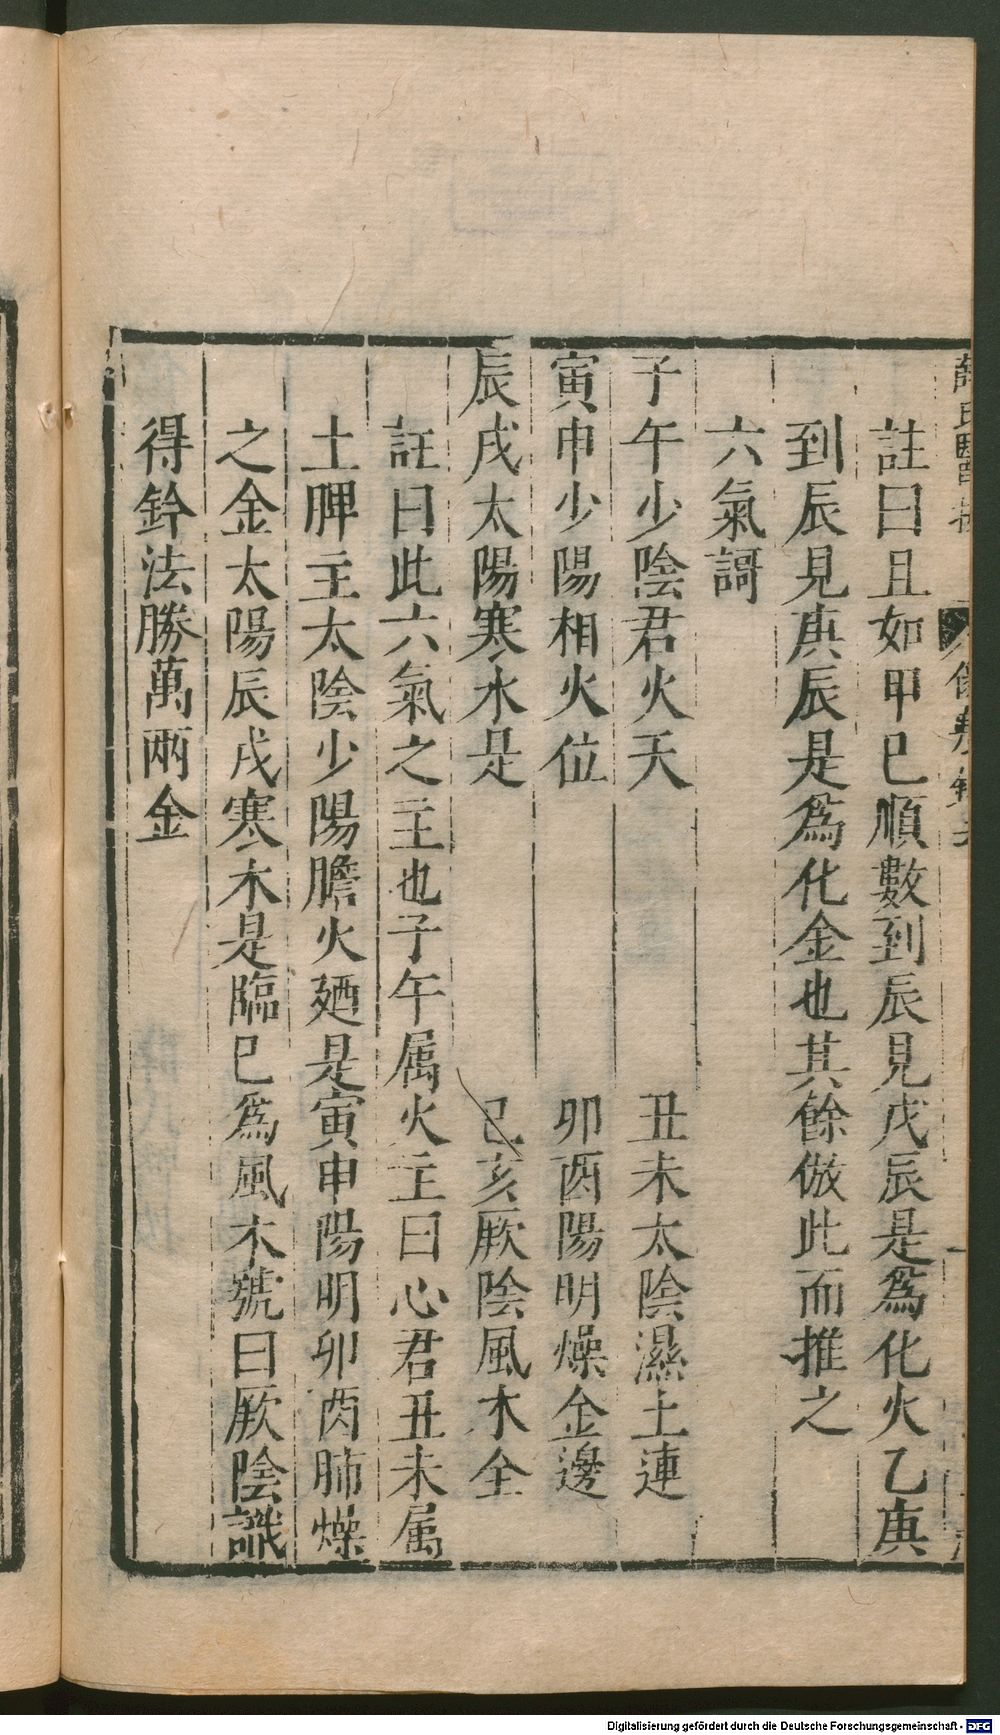 註曰且如甲巳順數到辰見戊辰是爲化火乙庚
到辰見庚辰是爲化金也其餘倣此而推之
六氣謌
子午少陰君火天　丑未太陰濕土連
寅申少陽相火位　卯酉陽明燥金邊
辰戌太陽寒水是　己亥厥陰風木全
註曰此六氣之主也子午属火主曰心君丑未属
土脾主太陰少陽膽火廼是寅申陽明卯酉肺燥
之金太陽辰戌寒木是臨巳爲風木號曰厥陰識
得鈐法勝萬兩金
Digitalisierung gefördert durch die Deutsche Forschungsgemeinschaft - DFG